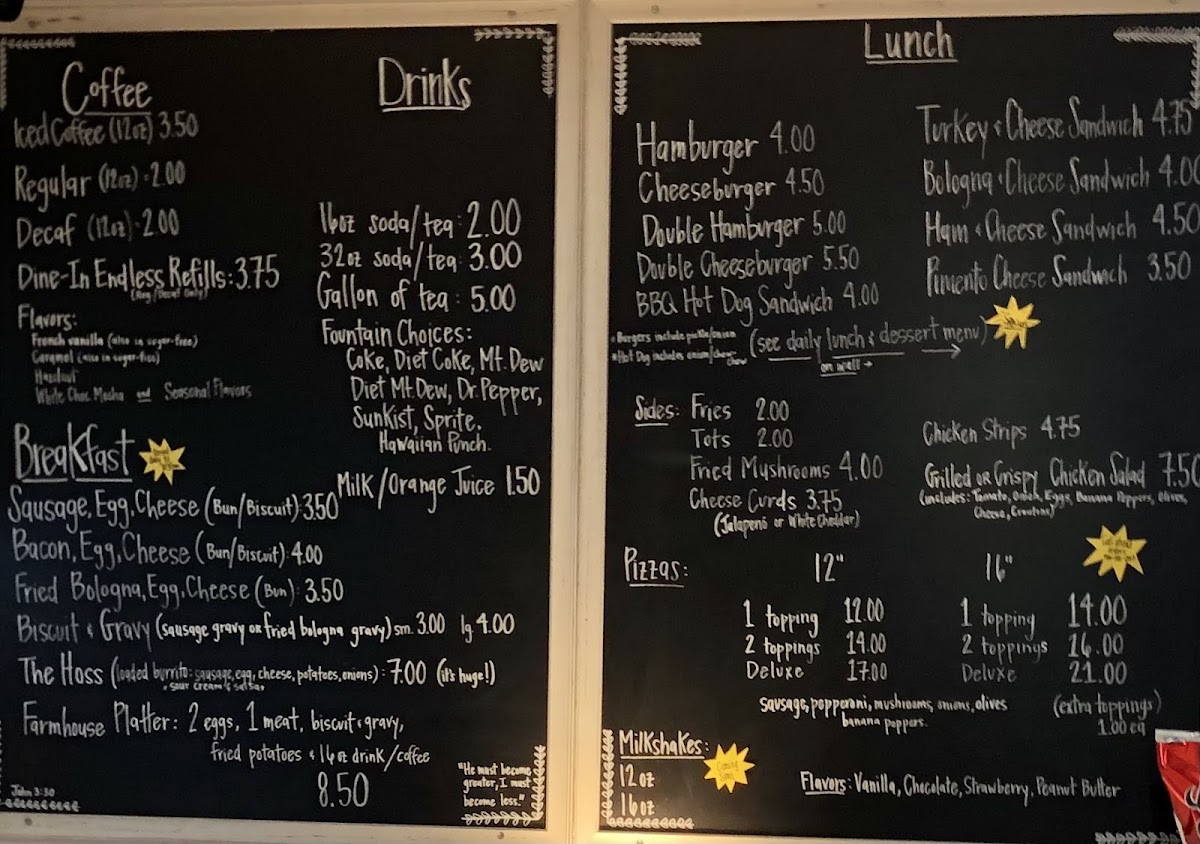 Coffee
Iced Coffee (12oz) 3.50
Regular (12oz): 2.00
Decaf (12oz): 2.00
Dine-In Endless Refills: 3.75
(Reg/Decaf Only)
Flavors:
French vanilla (also in sugar-free)
Caramel (also in sugar-free)
Hazelnut
White Choc Mocha and Seasonal Flavors
Drinks
16oz soda/tea: 2.00
32oz soda/tea: 3.00
Gallon of tea: 5.00
Fountain Choices:
Coke, Diet Coke, Mt. Dew
Diet Mt. Dew, Dr. Pepper,
Sunkist, Sprite,
Hawaiian Punch.
Milk/Orange Juice 1.50
Breakfast
Sausage, Egg, Cheese (Bun/Biscuit): 3.50
Bacon, Egg, Cheese (Bun/Biscuit): 4.00
Fried Bologna, Egg, Cheese (Bun): 3.50
Biscuit & Gravy (sausage gravy or fried bologna gravy) sm. 3.00 lg. 4.00
The Hoss (loaded burrito: sausage, egg, cheese, potatoes, onions): 7.00 (it's huge!)
+ sour cream & salsa
Farmhouse Platter: 2 eggs, 1 meat, biscuit & gravy,
fried potatoes & 16oz drink/coffee
8.50
John 3:30
"He must become
greater, I must
become less."
Lunch
Hamburger 4.00
Cheeseburger 4.50
Double Hamburger 5.00
Double Cheeseburger 5.50
BBQ Hot Dog Sandwich 4.00
Turkey & Cheese Sandwich 4.75
Bologna & Cheese Sandwich 4.00
Ham & Cheese Sandwich 4.50
Pimento Cheese Sandwich 3.50
* Burgers include pickle/onion
* Hot Dog includes onion/chow chow
(see daily lunch & dessert menu)
on wall →
Sides: Fries 2.00
Tots 2.00
Fried Mushrooms 4.00
Cheese Curds 3.75
(Jalapeno or White Cheddar)
Chicken Strips 4.75
Grilled or Crispy Chicken Salad 7.50
(includes: Tomato, Onion, Eggs, Banana Peppers, Olives,
Cheese, Croutons)
Pizzas: 12" 16"
1 topping 12.00 1 topping 14.00
2 toppings 14.00 2 toppings 16.00
Deluxe 17.00 Deluxe 21.00
sausage, pepperoni, mushrooms, onions, olives
banana peppers.
(extra toppings)
1.00 eq
Milkshakes:
12oz
16oz
Coming Soon
Flavors: Vanilla, Chocolate, Strawberry, Peanut Butter